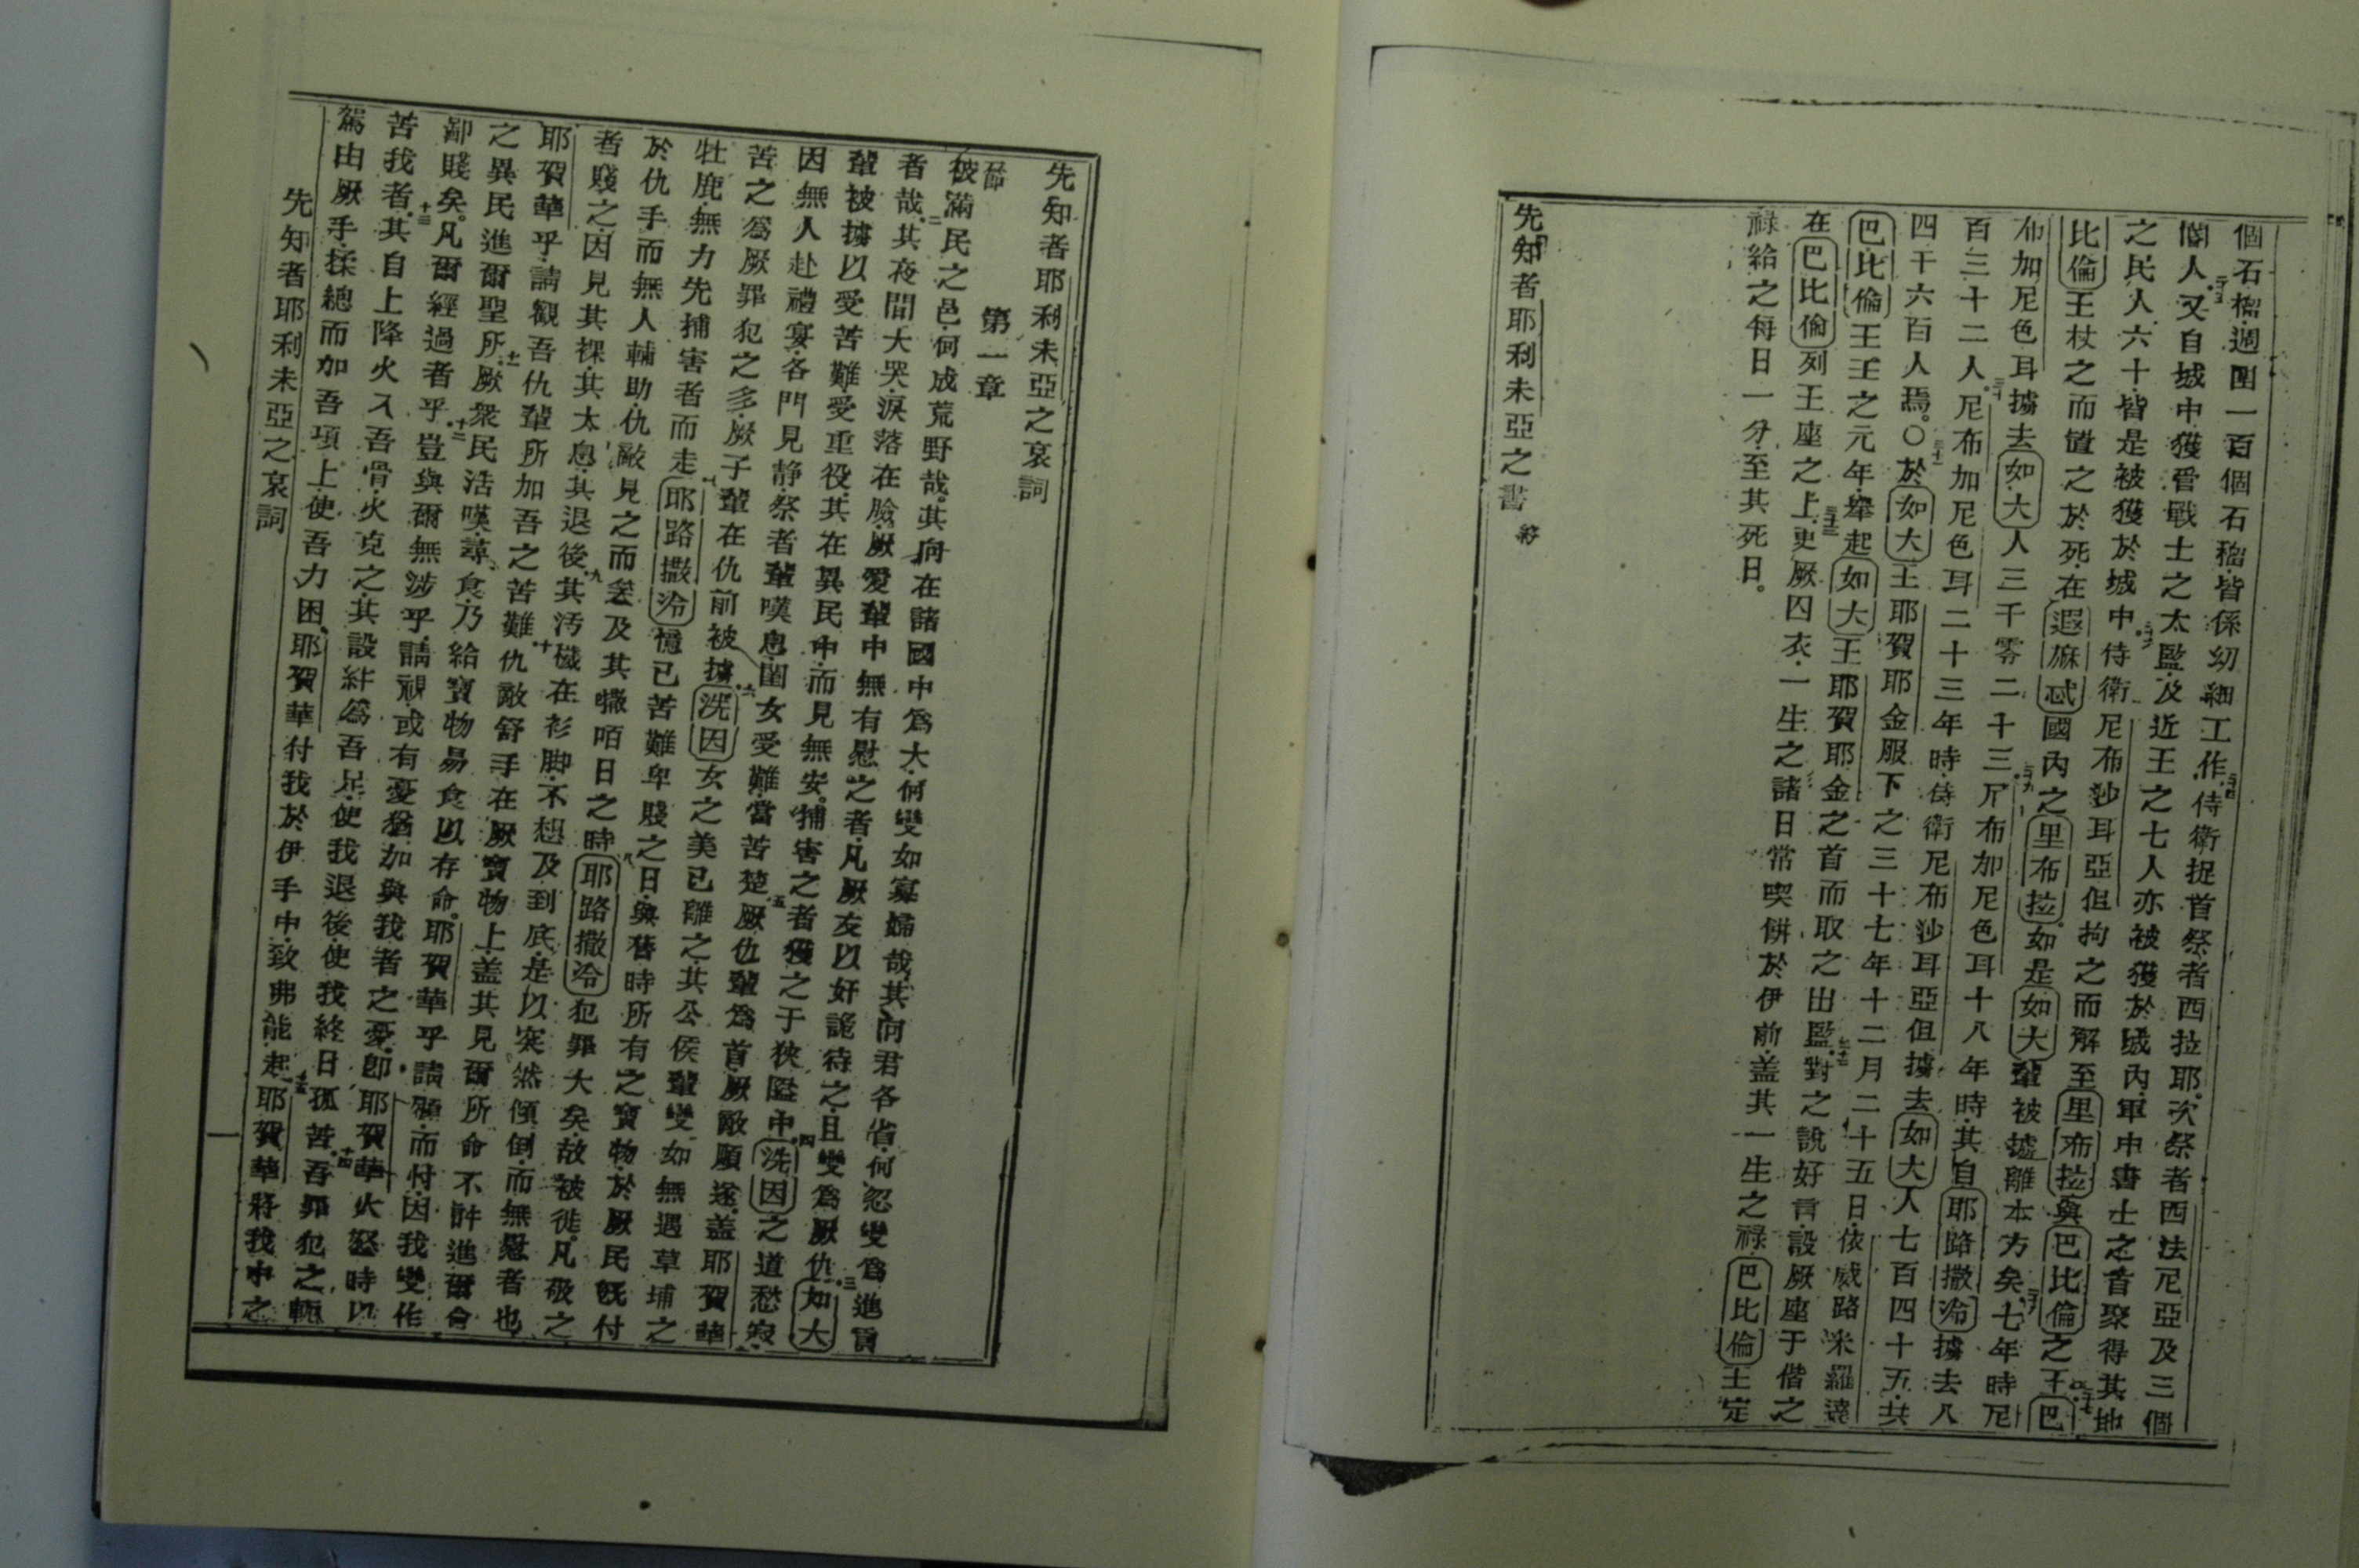 個石榴週圍一百個石榴皆係幼細工作侍衛捉首祭者西拉耶次祭者西法尼亞及三個
閽人又自城中獲管戰士之太監及近王之七人亦被獲於城內軍中書士之音聚得其地
之民人六十皆是被獲於城中侍衛尼布沙耳亞但拘之而解至里布拉與巴比倫之王巴
比倫王杖之而置之於死在遐麻忒國內之里布拉如是如大輩被擄離本方矣七年時尼
布加尼色耳擄去如大人三千零二十三尼布加尼色耳十八年時其自耶路撒冷擄去八
百三十二人尼布加尼色耳二十三年時侍衛尼布沙耳亞但擄去如大人七百四十五共
四千六百人焉○於如大王耶賀耶金服下之三十七年十二月二十五日依威路米羅達
巴比倫王王之元年舉起如大王耶賀耶金之首而取之出監對之說好言設厥座于偕之
在巴比倫列王座之上更厥囚衣一生之諸日常喫餅於伊前盖其一生之祿巴比倫王定
祿給之每日一分至其死日
先知者耶利未亞之書 終
先知者耶利未亞之哀詞
第一章
被滿民之邑何成荒野哉其向在諸國中為大何變如寡婦哉其向君各省何忍變為進貢
者哉其夜間大哭淚落在臉厥愛輩中無有慰之者凡厥友以奸詭待之且變為厥仇如大
輩被擄以受苦難受重役其在異民中而見無安捕害之者獲之于狹隘中洗因之道愁寂
因無人赴禮宴各門見靜祭者輩嘆息閨女受難當苦楚厥仇輩為首厥敵願遂盖耶賀華
苦之為厥罪犯之多厥子輩在仇前被擄洗因女之美已離之其公侯輩變如無遇草埔之
牡鹿無力先捕害者而走耶路撒冷憶已苦難卑賤之日與舊時所有之寶物於厥民旣付
於仇手而無人輔助仇敵見之而及其𠲖日之時耶路撒冷犯罪大矣故被徙凡敬之
者賤之因見其裸其太息其退後其汚穢在衫脚不想及到底是以突然傾倒而無慰者也
耶賀華乎請觀吾仇輩所加吾之苦難仇敵舒手在厥寶物上盖其見爾所命不許進爾會
之異民進爾聖所厥衆民活嘆尋食乃給寶物易食以存命耶賀華乎請顧而忖因我變作
鄙賤矣凡爾經過者乎豈與爾無涉乎請視或有憂猶加與我者之憂卽耶賀華火怒時以
苦我者其自上降火入吾骨火克之其設絆為吾足使我退後使我終日孤苦吾罪犯之軛
駕由厥手揉總而加吾項上使吾力困耶賀華付我於伊手中致弗能起耶賀華將我中之
先知者耶利未亞之哀詞
一